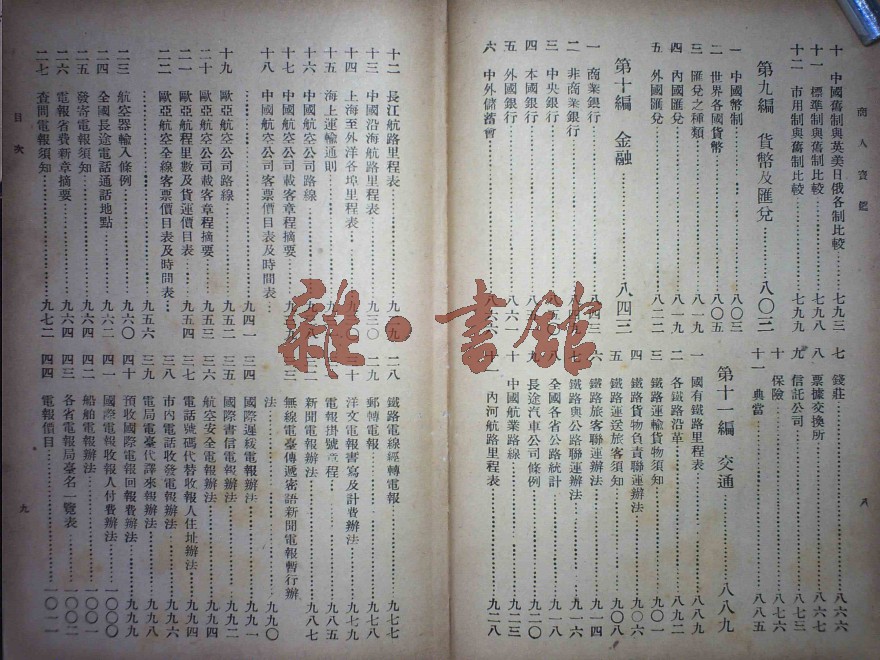 商人寶鑑
八
十 中國舊制與英美日俄各制比較……七九三
十一 標準制與舊制比較……七九八
十二 市用制與舊制比較……七九九
第九編 貨幣及匯兌……八〇三
一 中國幣制……八〇三
二 世界各國貨幣……八〇五
三 匯兌之種類……八一九
四 內國匯兌……八一九
五 外國匯兌……八二二
第十編 金融……八四三
一 商業銀行……八四三
二 非商業銀行……
三 中央銀行……
四 本國銀行……
五 外國銀行……八六一
六 中外儲蓄會……八六六
七 錢莊……八六六
八 票據交換所……八六七
九 信託公司……八七三
十 保險……八七六
十一 典當……八八五
第十一編 交通……八八九
一 國有鐵路里程表……八八九
二 各鐵路沿革……八九二
三 鐵路運輸貨物須知……九〇一
四 鐵路貨物負責聯運辦法……九〇六
五 鐵路運送旅客須知……九〇八
六 鐵路旅客聯運辦法……九一四
七 鐵路與公路聯運辦法……九一六
八 全國各省公路統計……九一八
九 長途汽車公司條例……九二〇
十 中國航業路線……九二三
十一 內河航路里程表……九二八
十二 長江航路里程表……九二九
十三 中國沿海航路里程表……九三〇
十四 上海至外洋各埠里程表……
十五 海上運輸通則……
十六 中國航空公司路線……
十七 中國航空公司載客章程摘要……
十八 中國航空公司客票價目表及時間表……
十九 歐亞航空公司路線……九四一
二十 歐亞航空公司載客章程摘要……九五三
二一 歐亞航程里數及貨運價目表……九五四
二二 歐亞航空全線客票價目表及時間表……九五六
二三 航空器輸入條例……九六〇
二四 全國長途電話通話地點……九六二
二五 發寄電報須知……九六四
二六 電報省費新章摘要……九六四
二七 查問電報須知……九七二
二八 鐵路電線經轉電報……九七七
二九 郵轉電報……九七八
洋文電報書寫及計費辦法……九七九
電報掛號章程……
三二 新聞電報辦法……九八七
三三 無線電臺傳遞密語新聞電報暫行辦法……九九〇
三四 國際遲緩電報辦法……九九一
三五 國際書信電報辦法……九九二
三六 航空安全電報辦法……九九四
三七 電話號碼代替收報人住址辦法……九九四
三八 市內電話收發電報辦法……九九六
三九 電局電臺代譯來報辦法……九九八
四十 預收國際電報回報費辦法……九九九
四一 國際電報收報人付費辦法……一〇〇〇
四二 船舶電報辦法……一〇〇一
四三 各省電報局臺名一覽表……一〇〇二
四四 電報價目……一〇一一
目次
九
雜·書館